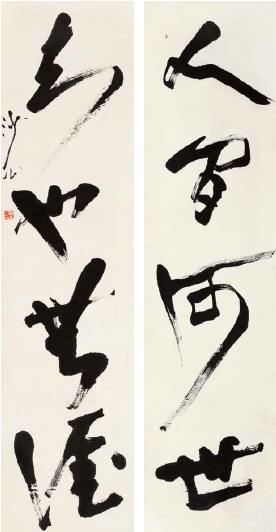 人間何世
知也無涯